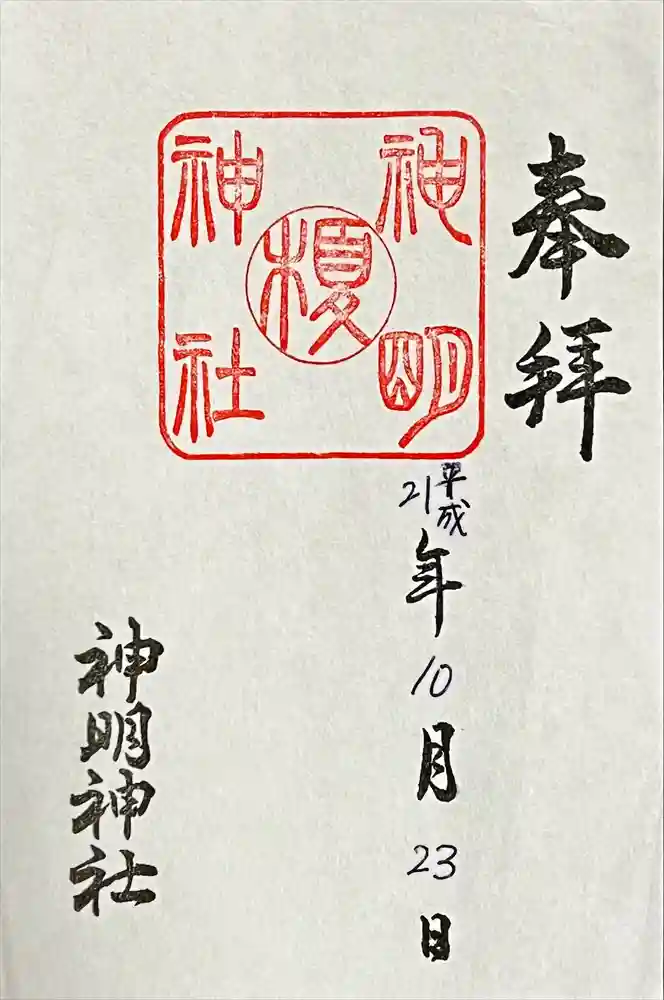 奉拝
神明
榎
神社
平成21年10月23日
神明神社